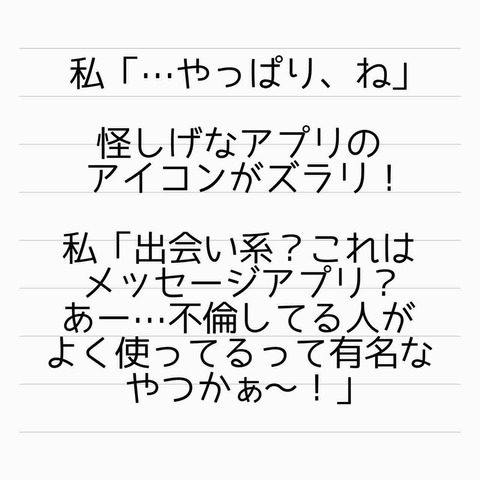 私「…やっぱり、ね」
怪しげなアプリの
アイコンがズラリ！
私「出会い系？これは
メッセージアプリ？
あー…不倫してる人が
よく使ってるって有名な
やつかぁ～！」